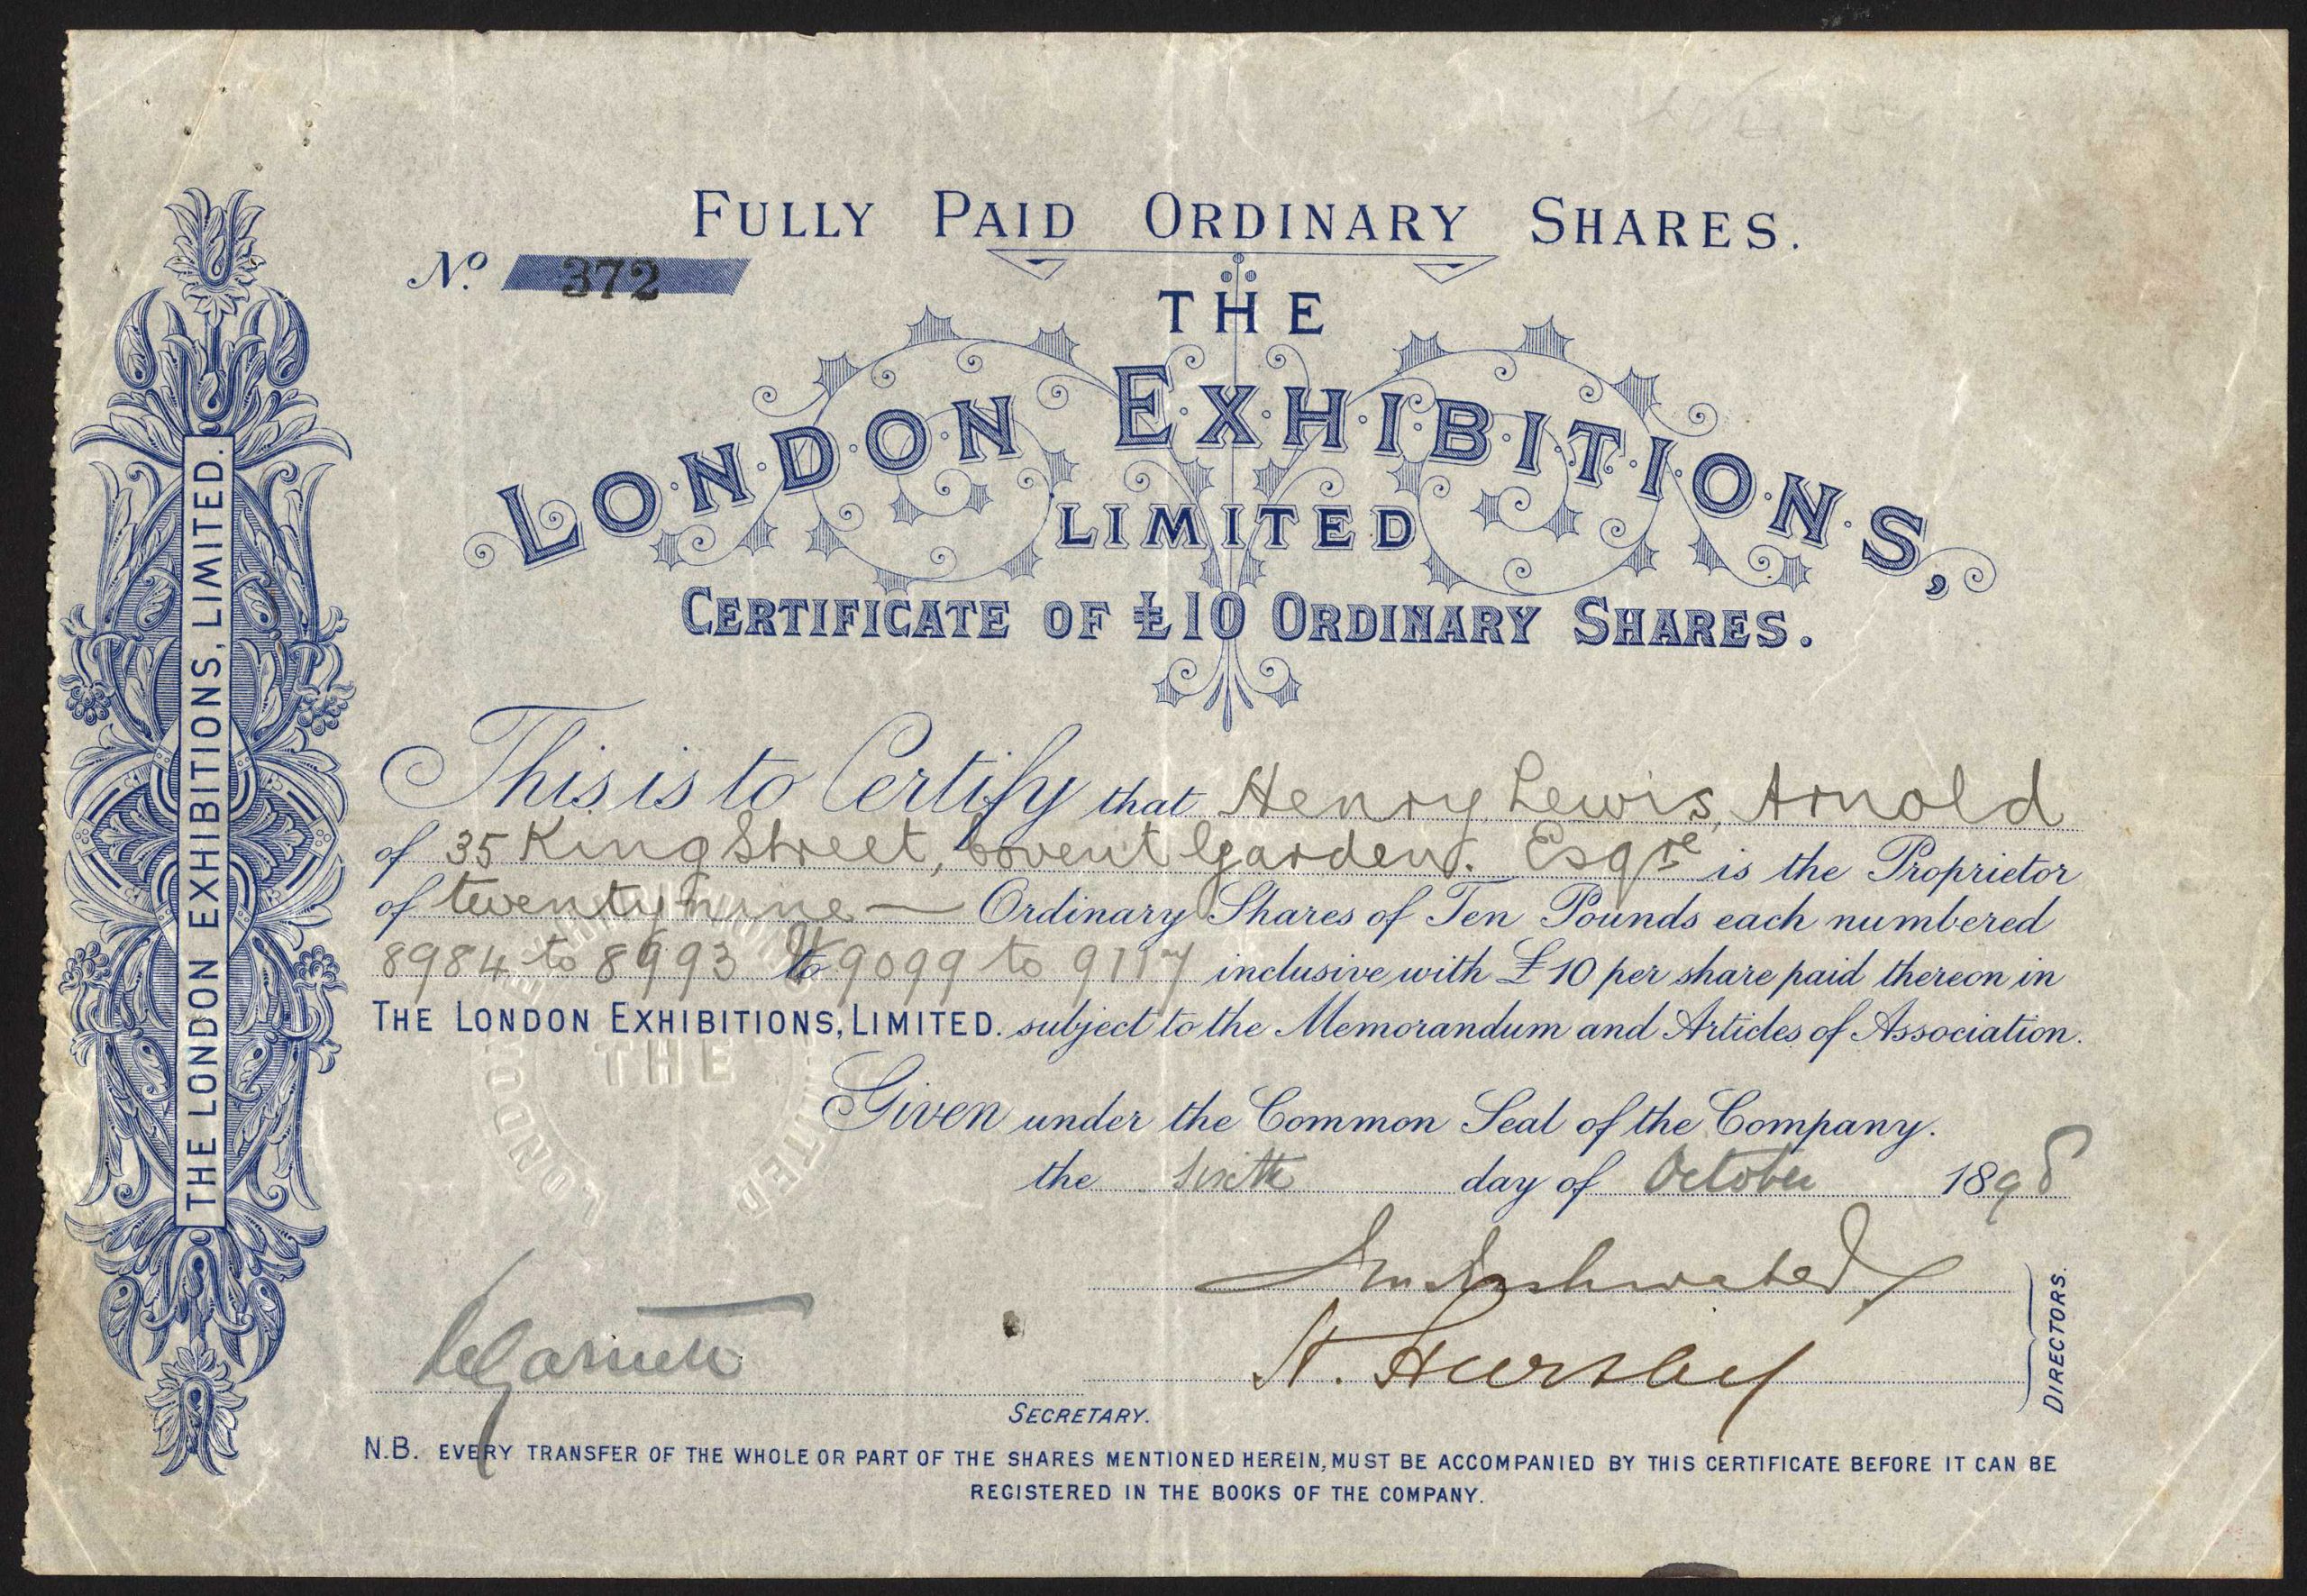 FULLY PAID ORDINARY SHARES.
No. 372
THE
LONDON EXHIBITIONS,
LIMITED
CERTIFICATE OF £10 ORDINARY SHARES.
This is to Certify that Henry Lewis, Arnold
of 35 King Street, Covent Garden. Esqre is the Proprietor
of twenty nine — Ordinary Shares of Ten Pounds each numbered
8984 to 8993 & 9099 to 9117 inclusive with £10 per share paid thereon in
THE LONDON EXHIBITIONS, LIMITED. subject to the Memorandum and Articles of Association.
THE
LONDON EXHIBITIONS LIMITED
Given under the Common Seal of the Company.
the sixth day of October 1898
DIRECTORS.
SECRETARY.
N.B. EVERY TRANSFER OF THE WHOLE OR PART OF THE SHARES MENTIONED HEREIN, MUST BE ACCOMPANIED BY THIS CERTIFICATE BEFORE IT CAN BE
REGISTERED IN THE BOOKS OF THE COMPANY.
THE LONDON EXHIBITIONS, LIMITED.